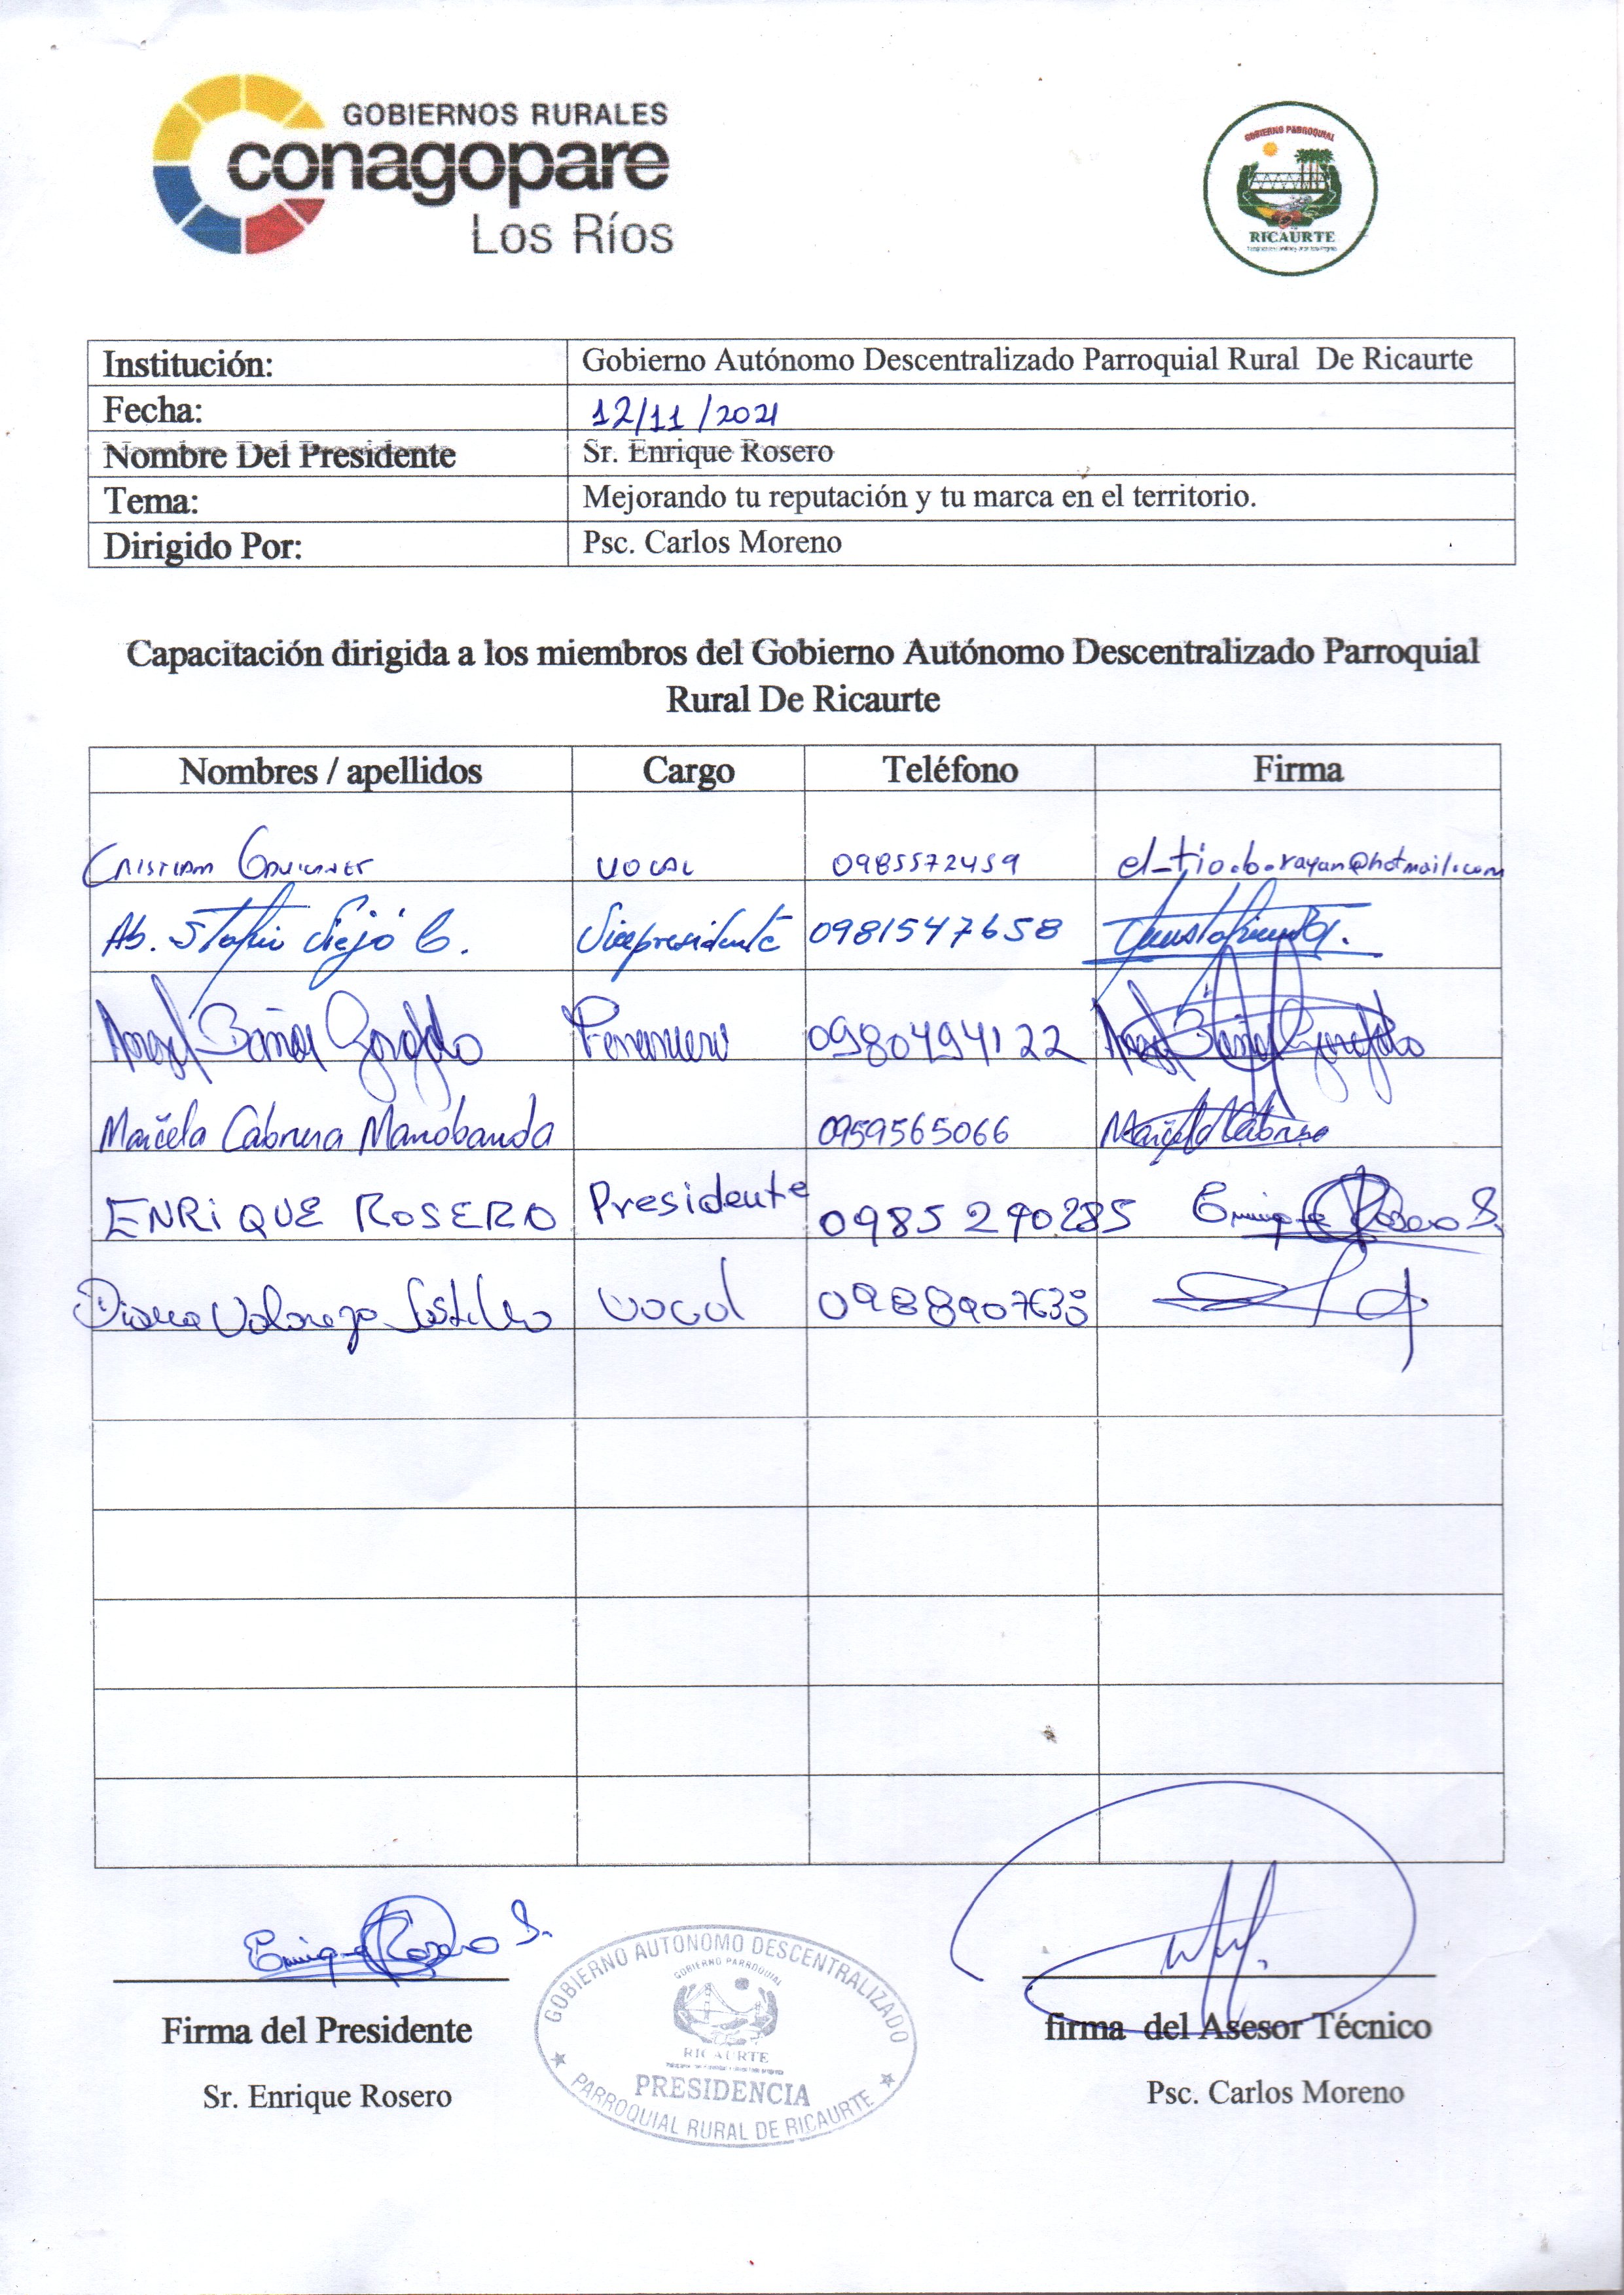 GOBIERNOS RURALES
conagopare
Los Ríos
GOBIERNO PARROQUIAL
RICAURTE
Institución: Gobierno Autónomo Descentralizado Parroquial Rural De Ricaurte
Fecha: 12/11/2021
Nombre Del Presidente Sr. Enrique Rosero
Tema: Mejorando tu reputación y tu marca en el territorio.
Dirigido Por: Psc. Carlos Moreno
Capacitación dirigida a los miembros del Gobierno Autónomo Descentralizado Parroquial
Rural De Ricaurte
Nombres / apellidos Cargo Teléfono Firma
CRISTIAM VOCAL 0985572459 el-tio.b.rayan@hotmail.com
Ab. C. Vicepresidente 0981547658
Angel 0980494122
Maricela Cabrera Manobanda 0959565066 Maricela Cabrera
ENRIQUE ROSERO Presidente 0985290285 Enrique Rosero S.
Diana Vocal 0988907638
Enrique Rosero S.
Firma del Presidente firma del Asesor Técnico
Sr. Enrique Rosero Psc. Carlos Moreno
GOBIERNO AUTONOMO DESCENTRALIZADO
GOBIERNO PARROQUIAL
RICAURTE
PRESIDENCIA
PARROQUIAL RURAL DE RICAURTE